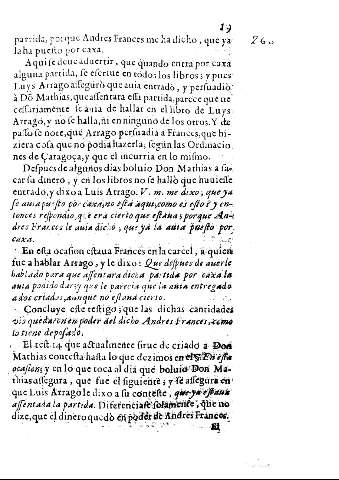 19
260
partida, porque Andres Frances me ha dicho, que ya
la ha puesto por caxa.
Aqui se deue aduertir, que quando entra por caxa
alguna partida, se escriue en todos los libros; y pues
Luys Arrago asseguró que auia entrado, y persuadió
à Dō Mathias, que assentara essa partida, parece que ne
cessariamente se auia de hallar en el libro de Luys
Arrago, y no se halla, ni en ninguno de los otros. Y de
passo se note, que Arrago persuadia a Frances, que hi-
ziera cosa que no podia hazerla, segun las Ordinacio
nes de Çaragoça, y que el incurria en lo mismo.
Despues de algunos dias boluio Don Mathias a sa-
car su dinero, y en los libros no se halló que huuiesse
entrado, y dixo a Luis Arrago. V. m. me dixo, que ya
se auia puesto por caxa, no está aqui, como es esso? y en-
tonces respondio, que era cierto que estaua; porque An-
dres Frances le auia dicho, que ya la auia puesto por
caxa.
En esta ocasion estaua Frances en la carcel, a quien
fue a hablar Arrago, y le dixo: Que despues de auerle
hablado para que assentara dicha partida por caxa la
auia podido dar; y que le parecia que la auia entregado
a dos criados, aunque no estaua cierto.
Concluye este testigo; que las dichas cantidades
vio quedaron en poder del dicho Andres Frances, como
lo tiene deposado.
El test. 14. que actualmente sirue de criado a Don
Mathias contesta hasta lo que dezimos en el En esta
ocasion; y en lo que toca al dia que boluio Don Ma-
thias assegura, que fue el siguiente; y se assegura en
que Luis Arrago le dixo a su conteste, que ya estaua
assentada la partida. Diferenciase solamente, que no
dize, que el dinero quedó en poder de Andres Frances.
El